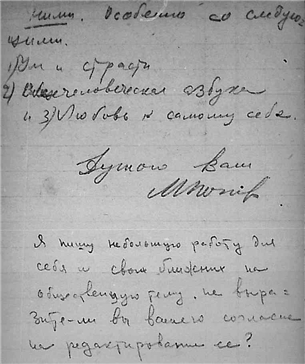 ними. Особенно со следую-
щими.
1) Ум и страсти
2) Всечеловеческая азбука
и 3) Любовь к самому себе.
Душою Ваш
Я пишу небольшую работу для
себя и своих ближних на
общественную тему, не выра-
зите-ли вы вашего согласие
на редактирование ее?